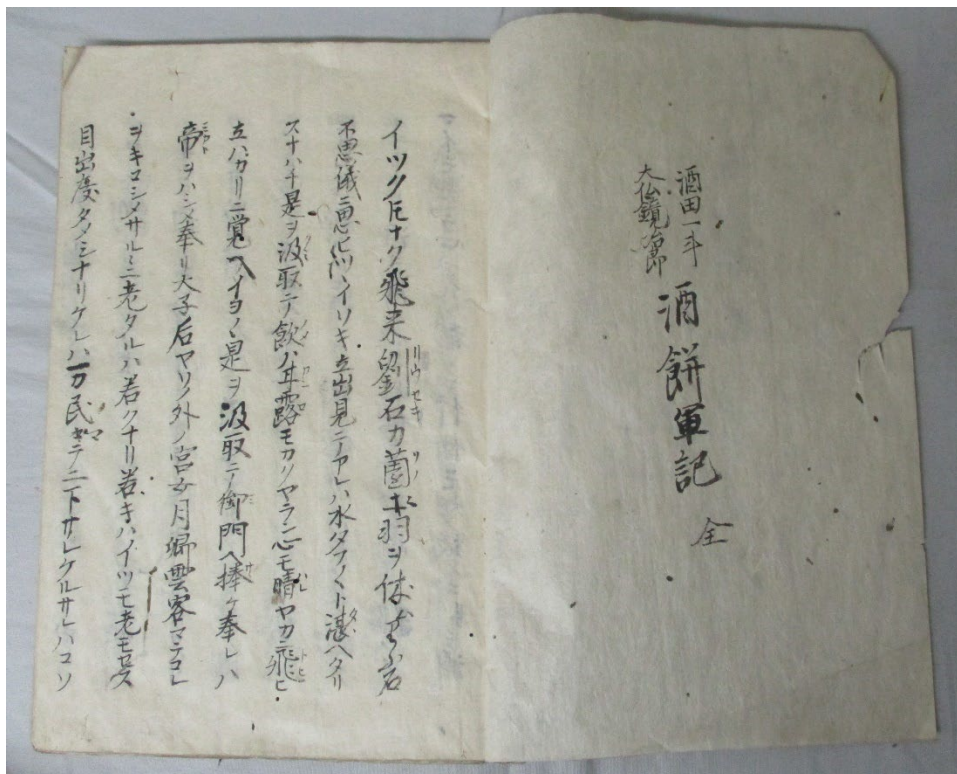 酒田一斗
大仏鏡次郎
酒餅軍記
全
イツクトモナク飛来留石カ薗ニ羽ヲ休
不思儀ニ思ヒツヽイソキ立出見ニアレハ水タフ〱ト湛ヘタリ
スナハチ是ヲ汲取テ飲ハ甘露モカクヤラン心モ晴ヤカニ飛ヒ
立ハカリニ覚ヘイヨ〱是ヲ汲取テ御門ヘ捧ケ奉レハ
帝ヲハシメ奉リ大子后ヤソノ外ノ宮女月卿雲客マテコレ
ヲキコシメサルヽニ老タルハ若クナリ若キハイツモ老モセス
目出度タメシナリケレハ万民マテニ下サレケルサレハコソ